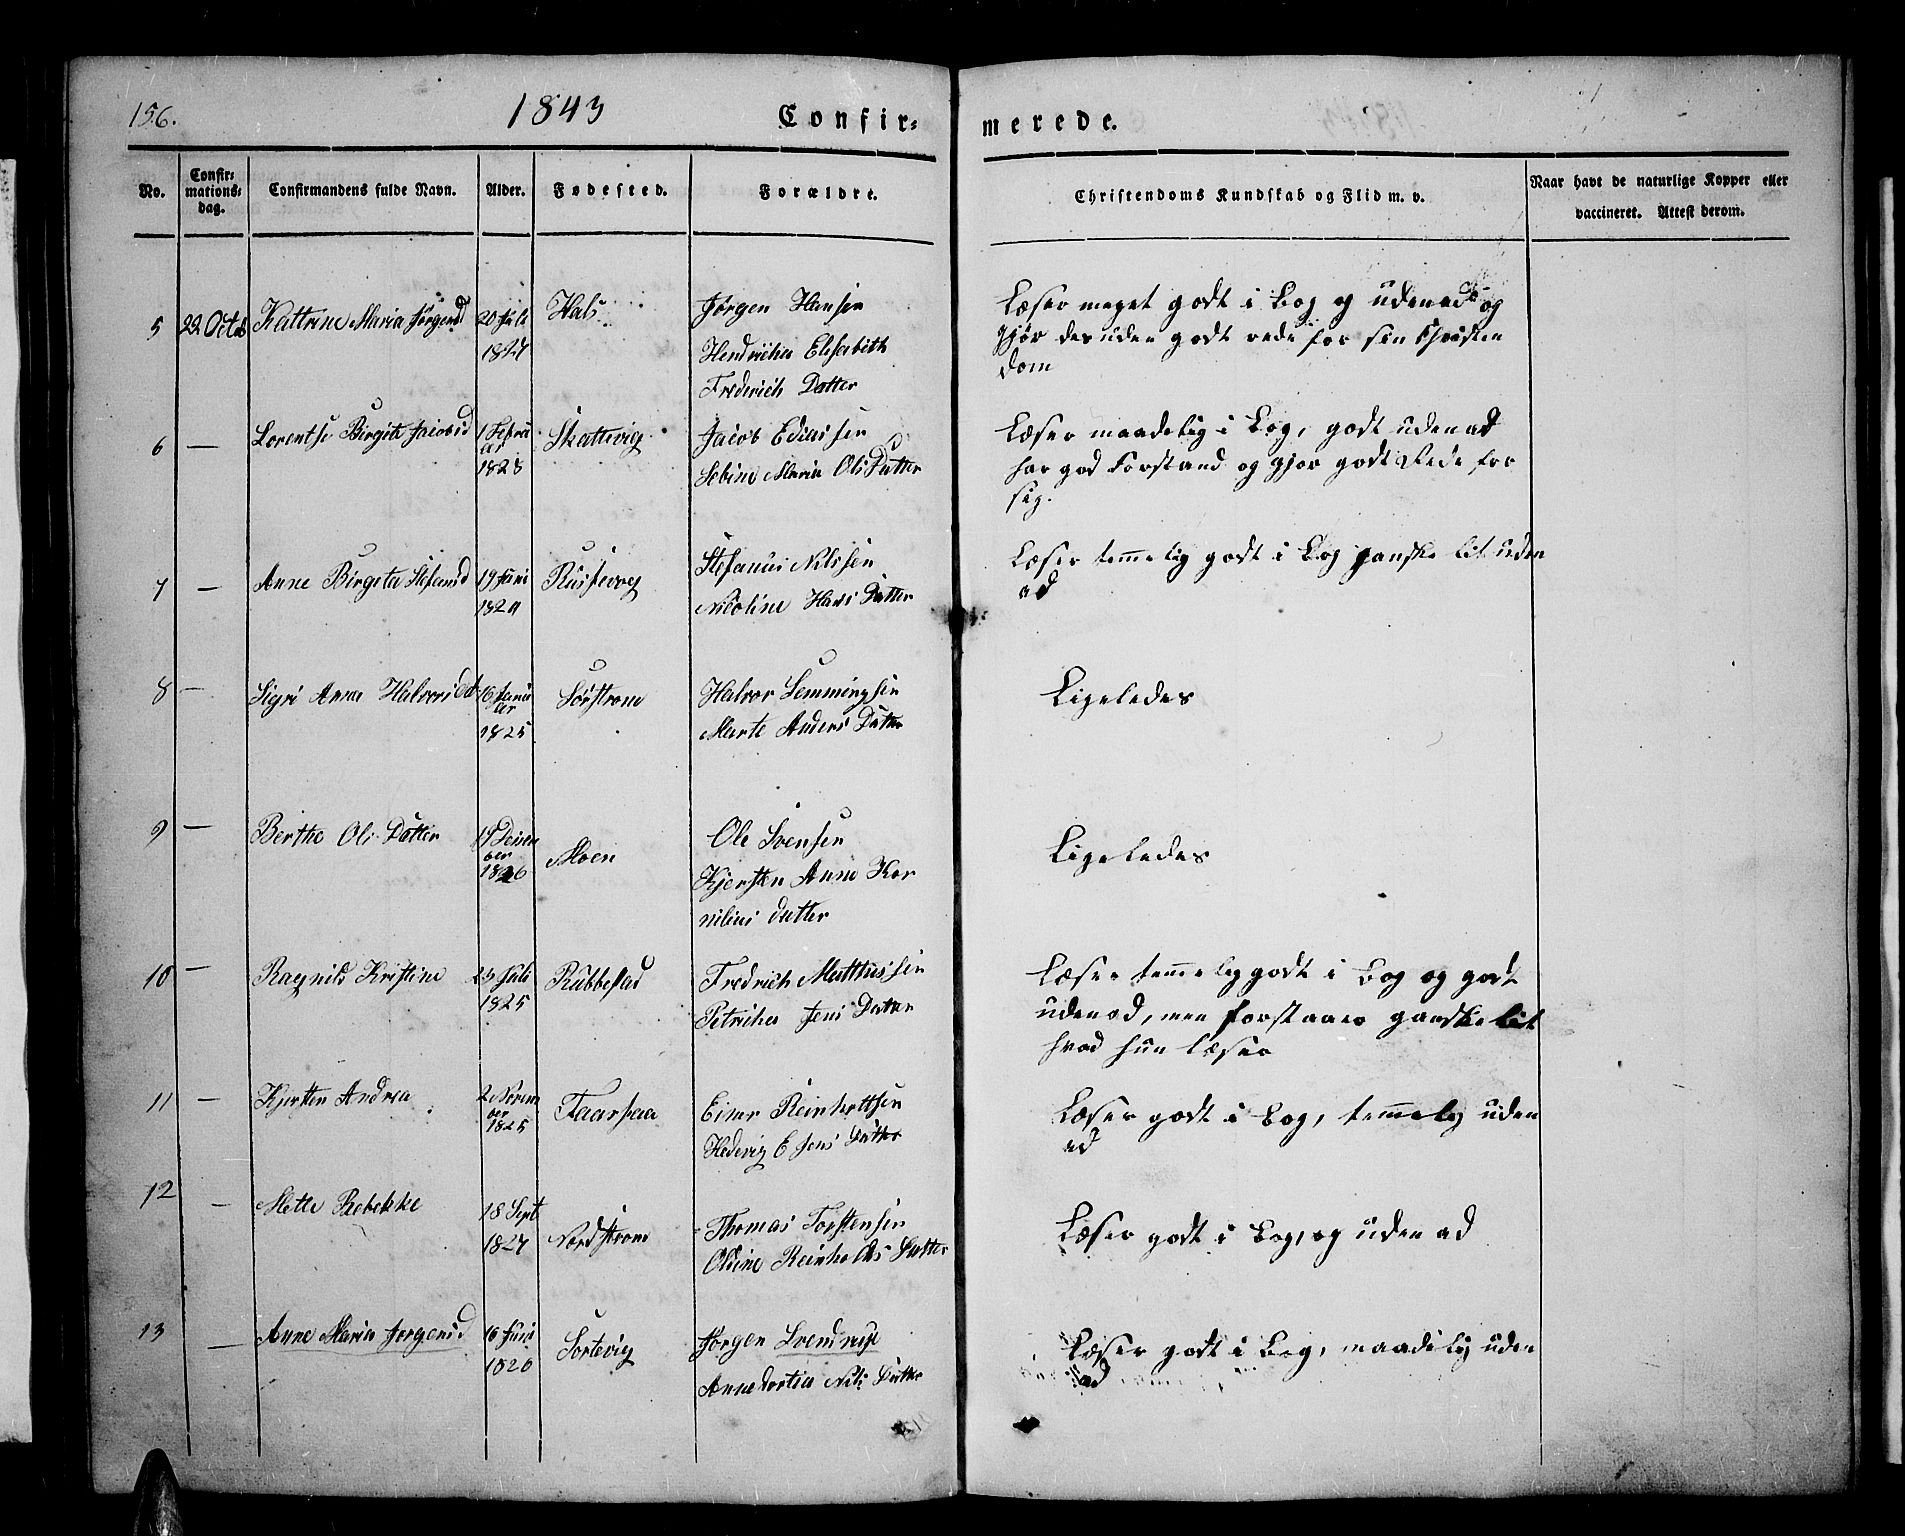 156.
1843
Confir-
merede.
No.
Confir-
mations-
dag.
Confirmandens fulde Navn.
Alder.
Fødested.
Forældre.
Christendoms Kundskab og Flid m. v.
Naar havt de naturlige Kopper eller
vaccineret. Attest derom.
5 22 Octob Kattrine Maria Jørgensd 20 Juli Hals Jørgen Hansen
1827 Hendricha Elisabeth
Frederich Datter
Læser meget godt i Bog og udenad og
gjør desuden godt rede for sin Christen
dom
6 — Lorentse Birgite Jacobsd 1 Febru Skattevig Jacob Ediassen
ar
1823 Sebine Maria Ols Datter
Læser maadelig i Bog, godt udenad
har god Forstand og gjør godt Rede for
sig.
7 — Anne Birgeta Stefansd 19 Juni Russevog Stefanus Nilssen
1824 Nicoline Hans Datter
Læser temelig godt i Bog ganske lit uden
ad
8 — Sigri Anna Halvorsdat 16 Janu Sørstrøm Halvor Lemmingsen
ar
1825 Marte Anders Datter
Ligeledes
9 — Berthe Ols Datter 19 Desem Moen Ole Svensen
ber
1826 Kjersten Anne Kor
nelius datter
Ligeledes
10 — Ragnild Kristine 23 Juli Rubbestad Fredrich Matthissen
1825 Petricha Jens Datter
Læser temelig godt i Bog og godt
udenad, men forstaaer ganske lit
hvad hun læser
11 — Kjersten Andrea 2 Novem Faarhaa Einer Reinholtsen
ber
1825 Hedevig E Jens Datter
Læser godt i Bog, temelig uden
ad
12 — Mette Rebekke 18 Sept Nordstrøm Thomas Torstensen
1827 Oline Reinholds Datter
Læser godt i Bog, og uden ad
13 — Anne Maria Jørgensd 16 Juni Sortevig Jørgen Svendrup
1826 Annedortia Nils Datter
Læser godt i Bog, maadelig uden
ad